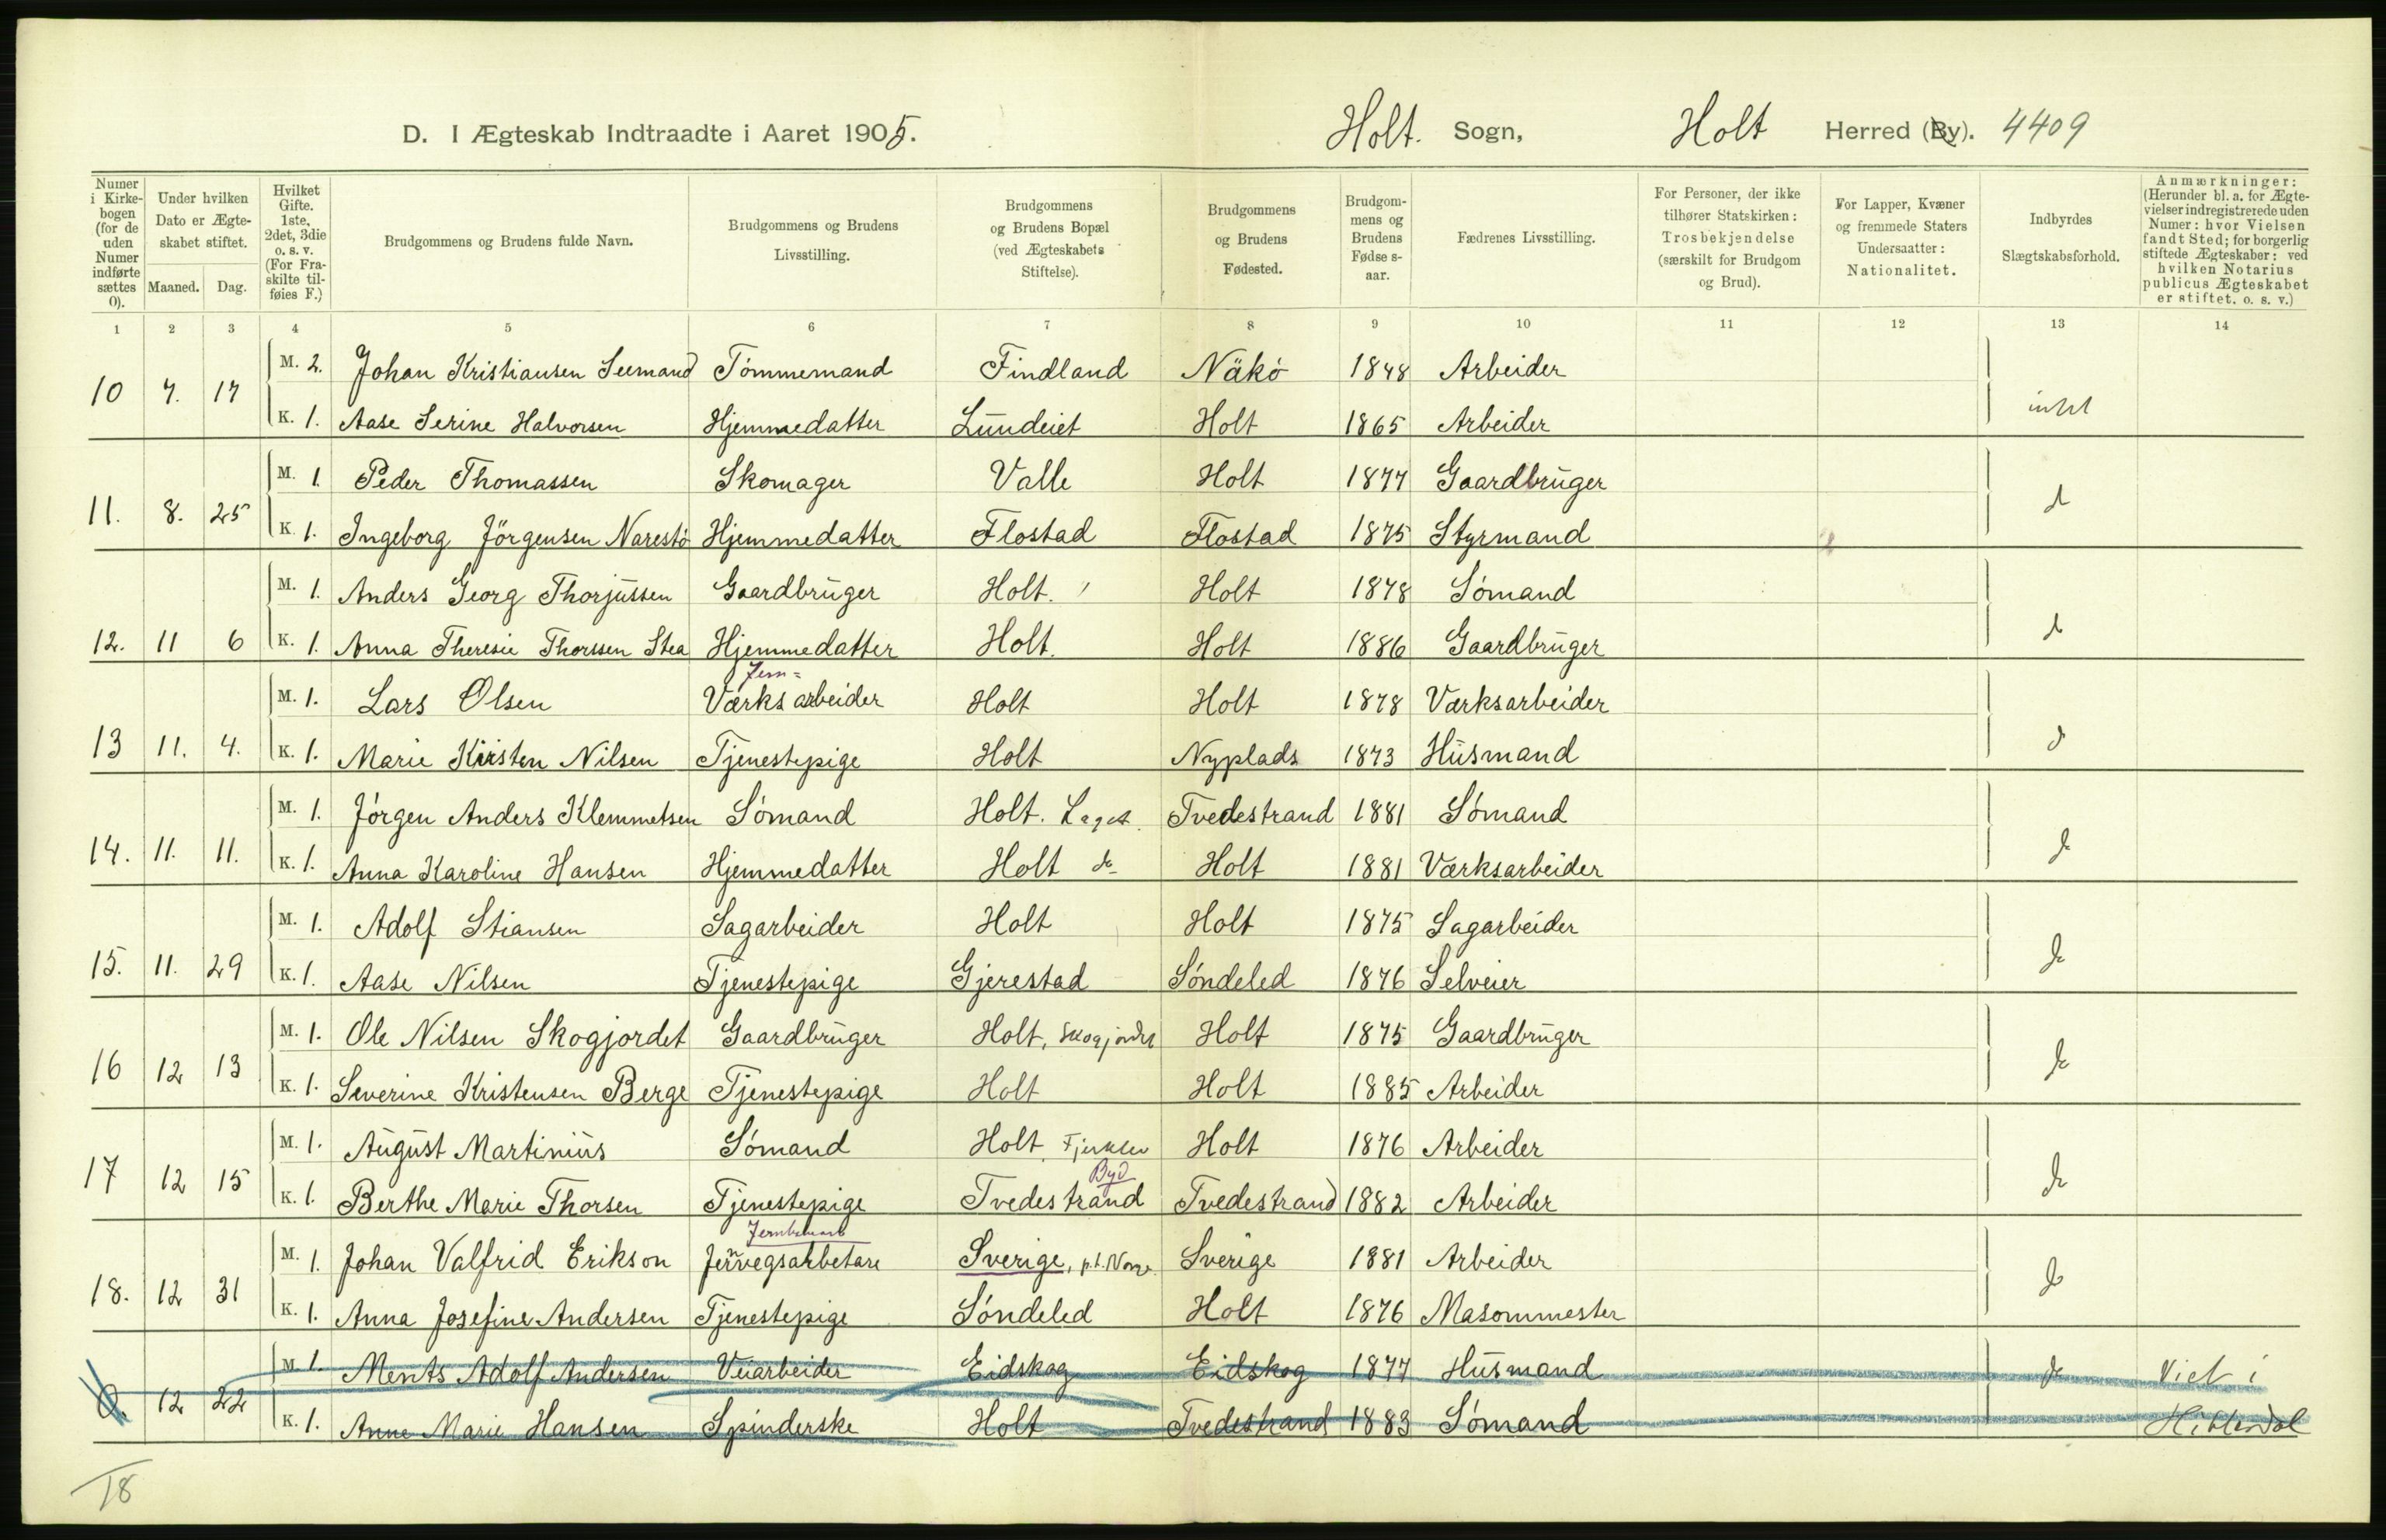 D. I Ægteskab Indtraadte i Aaret 1905. Holt. Sogn, Holt Herred (By). 4409
Numer i Kirkebogen (for de uden Numer indførte sættes 0).
Under hvilken Dato er Ægteskabet stiftet.
Maaned. Dag.
Hvilket Gifte. 1ste, 2det, 3die o. s. v. (For Fraskilte tilføies F.)
Brudgommens og Brudens fulde Navn.
Brudgommens og Brudens Livsstilling.
Brudgommens og Brudens Bopæl (ved Ægteskabets Stiftelse).
Brudgommens og Brudens Fødested.
Brudgommens og Brudens Fødselsaar.
Fædrenes Livsstilling.
For Personer, der ikke tilhører Statskirken: Trosbekjendelse (særskilt for Brudgom og Brud).
For Lapper, Kvæner og fremmede Staters Undersaatter: Nationalitet.
Indbyrdes Slægtskabsforhold.
Anmærkninger: (Herunder bl. a. for Ægtevielser indregistrerede uden Numer: hvor Vielsen fandt Sted; for borgerlig stiftede Ægteskaber: ved hvilken Notarius publicus Ægteskabet er stiftet. o. s. v.)
1 2 3 4 5 6 7 8 9 10 11 12 13 14
M. 2. Johan Kristiansen Seemand Tømmemand Findland Näkö 1848 Arbeider
10 7. 17 intet
K. 1. Aase Serine Halvorsen Hjemmedatter Lundeiet Holt 1865 Arbeider
M. 1 Peder Thomassen Skomager Valle Holt 1877 Gaardbruger
11. 8. 25 d
K. 1. Ingeborg Jörgensen Narestö Hjemmedatter Flostad Flostad 1875 Styrmand
M. 1. Anders Georg Thorjussen Gaardbruger Holt. Holt 1878 Sömand
12. 11 6 K. 1. Anna Theresie Thorssen Stea Hjemmedatter Holt. Holt 1886 Gaardbruger
Jern=
M. 1. Lars Olsen Værksarbeider Holt Holt 1878 Værksarbeider
13 11. 4. K. 1. Marie Kirsten Nilsen Tjenestepige Holt Nyplads 1873 Husmand
M. 1. Jörgen Anders Klemmetsen Sömand Holt. Laget. Tvedestrand 1881 Sömand
14. 11. 11. K. 1. Anna Karoline Hansen Hjemmedatter Holt do Holt 1881 Værksarbeider
M. 1. Adolf Stiansen Sagarbeider Holt Holt 1875 Sagarbeider
15. 11. 29 K. 1. Aase Nilsen Tjenestepige Gjerestad Söndeled 1876 Selveier
M. 1. Ole Nilsen Skogjordet Gaardbruger Holt, Skogjordet Holt 1875 Gaardbruger
16 12 13 K. 1. Severine Kristensen Berge Tjenestepige Holt Holt 1885 Arbeider
M. 1. August Martinius Sömand Holt, Holt 1876 Arbeider
Byd
17 12 15 K. 1. Berthe Marie Thorsen Tjenestepige Tvedestrand Tvedestrand 1882 Arbeider
M. 1. Johan Valfrid Erikson Jernvegsarbetare Sverige, p.t. Norge Sverige 1881 Arbeider
18. 12 31 K. 1. Anna Josefine Andersen Tjenestepige Söndeled Holt 1876 Masommester
M. 1. Ments Adolf Andersen Veiarbeider Eidskog Eidskog 1877 Husmand do Viet i
0. 12 22 K. 1. Anne Marie Hansen Spinderske Holt Tvedestrand 1883 Sömand Hitterdal
18